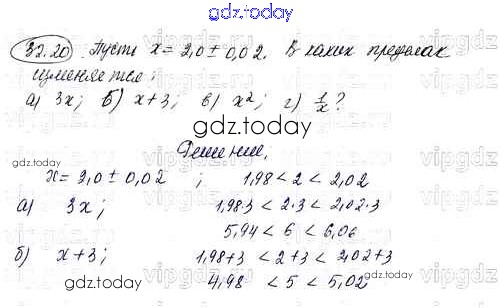 gdz.today
32.20 Пусть x = 2,0 ± 0,02. В каких пределах
изменяется:
а) 3x; б) x+3; в) x²; г) 1/x?
gdz.today
Решение.
x = 2,0 ± 0,02 ; 1,98 < 2 < 2,02
а) 3x; 1,98·3 < 2·3 < 2,02·3
5,94 < 6 < 6,06
б) x+3; 1,98+3 < 2+3 < 2,02+3
4,98 < 5 < 5,02
gdz.today
gdz.today